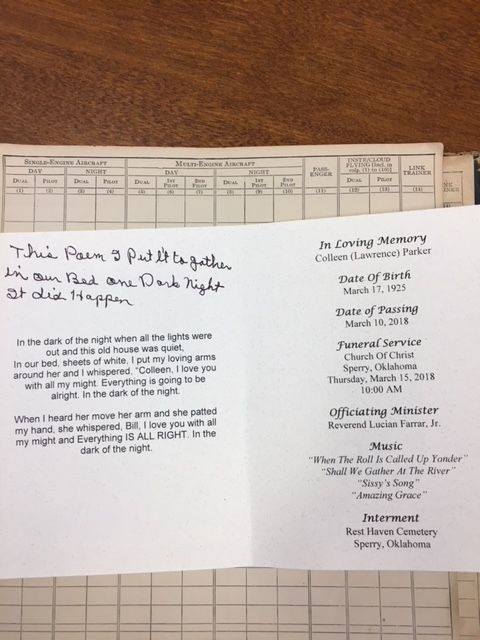 SINGLE-ENGINE AIRCRAFT
MULTI-ENGINE AIRCRAFT
PASS-
ENGER
INSTR/CLOUD
FLYING [Incl. in
cols. (1) to (10)]
LINK
TRAINER
DAY
NIGHT
DAY
NIGHT
DUAL
PILOT
DUAL
PILOT
DUAL
1ST
PILOT
2ND
PILOT
DUAL
1ST
PILOT
2ND
PILOT
DUAL
PILOT
(1)
(2)
(3)
(4)
(5)
(6)
(7)
(8)
(9)
(10)
(11)
(12)
(13)
(14)
This Poem I Put It to gather
in our Bed one Dark Night
It did Happen
In the dark of the night when all the lights were
out and this old house was quiet,
In our bed, sheets of white, I put my loving arms
around her and I whispered. "Colleen, I love you
with all my might. Everything is going to be
alright. In the dark of the night.
When I heard her move her arm and she patted
my hand, she whispered, Bill, I love you with all
my might and Everything IS ALL RIGHT. In the
dark of the night.
In Loving Memory
Colleen (Lawrence) Parker
Date Of Birth
March 17, 1925
Date of Passing
March 10, 2018
Funeral Service
Church Of Christ
Sperry, Oklahoma
Thursday, March 15, 2018
10:00 AM
Officiating Minister
Reverend Lucian Farrar, Jr.
Music
"When The Roll Is Called Up Yonder"
"Shall We Gather At The River"
"Sissy's Song"
"Amazing Grace"
Interment
Rest Haven Cemetery
Sperry, Oklahoma